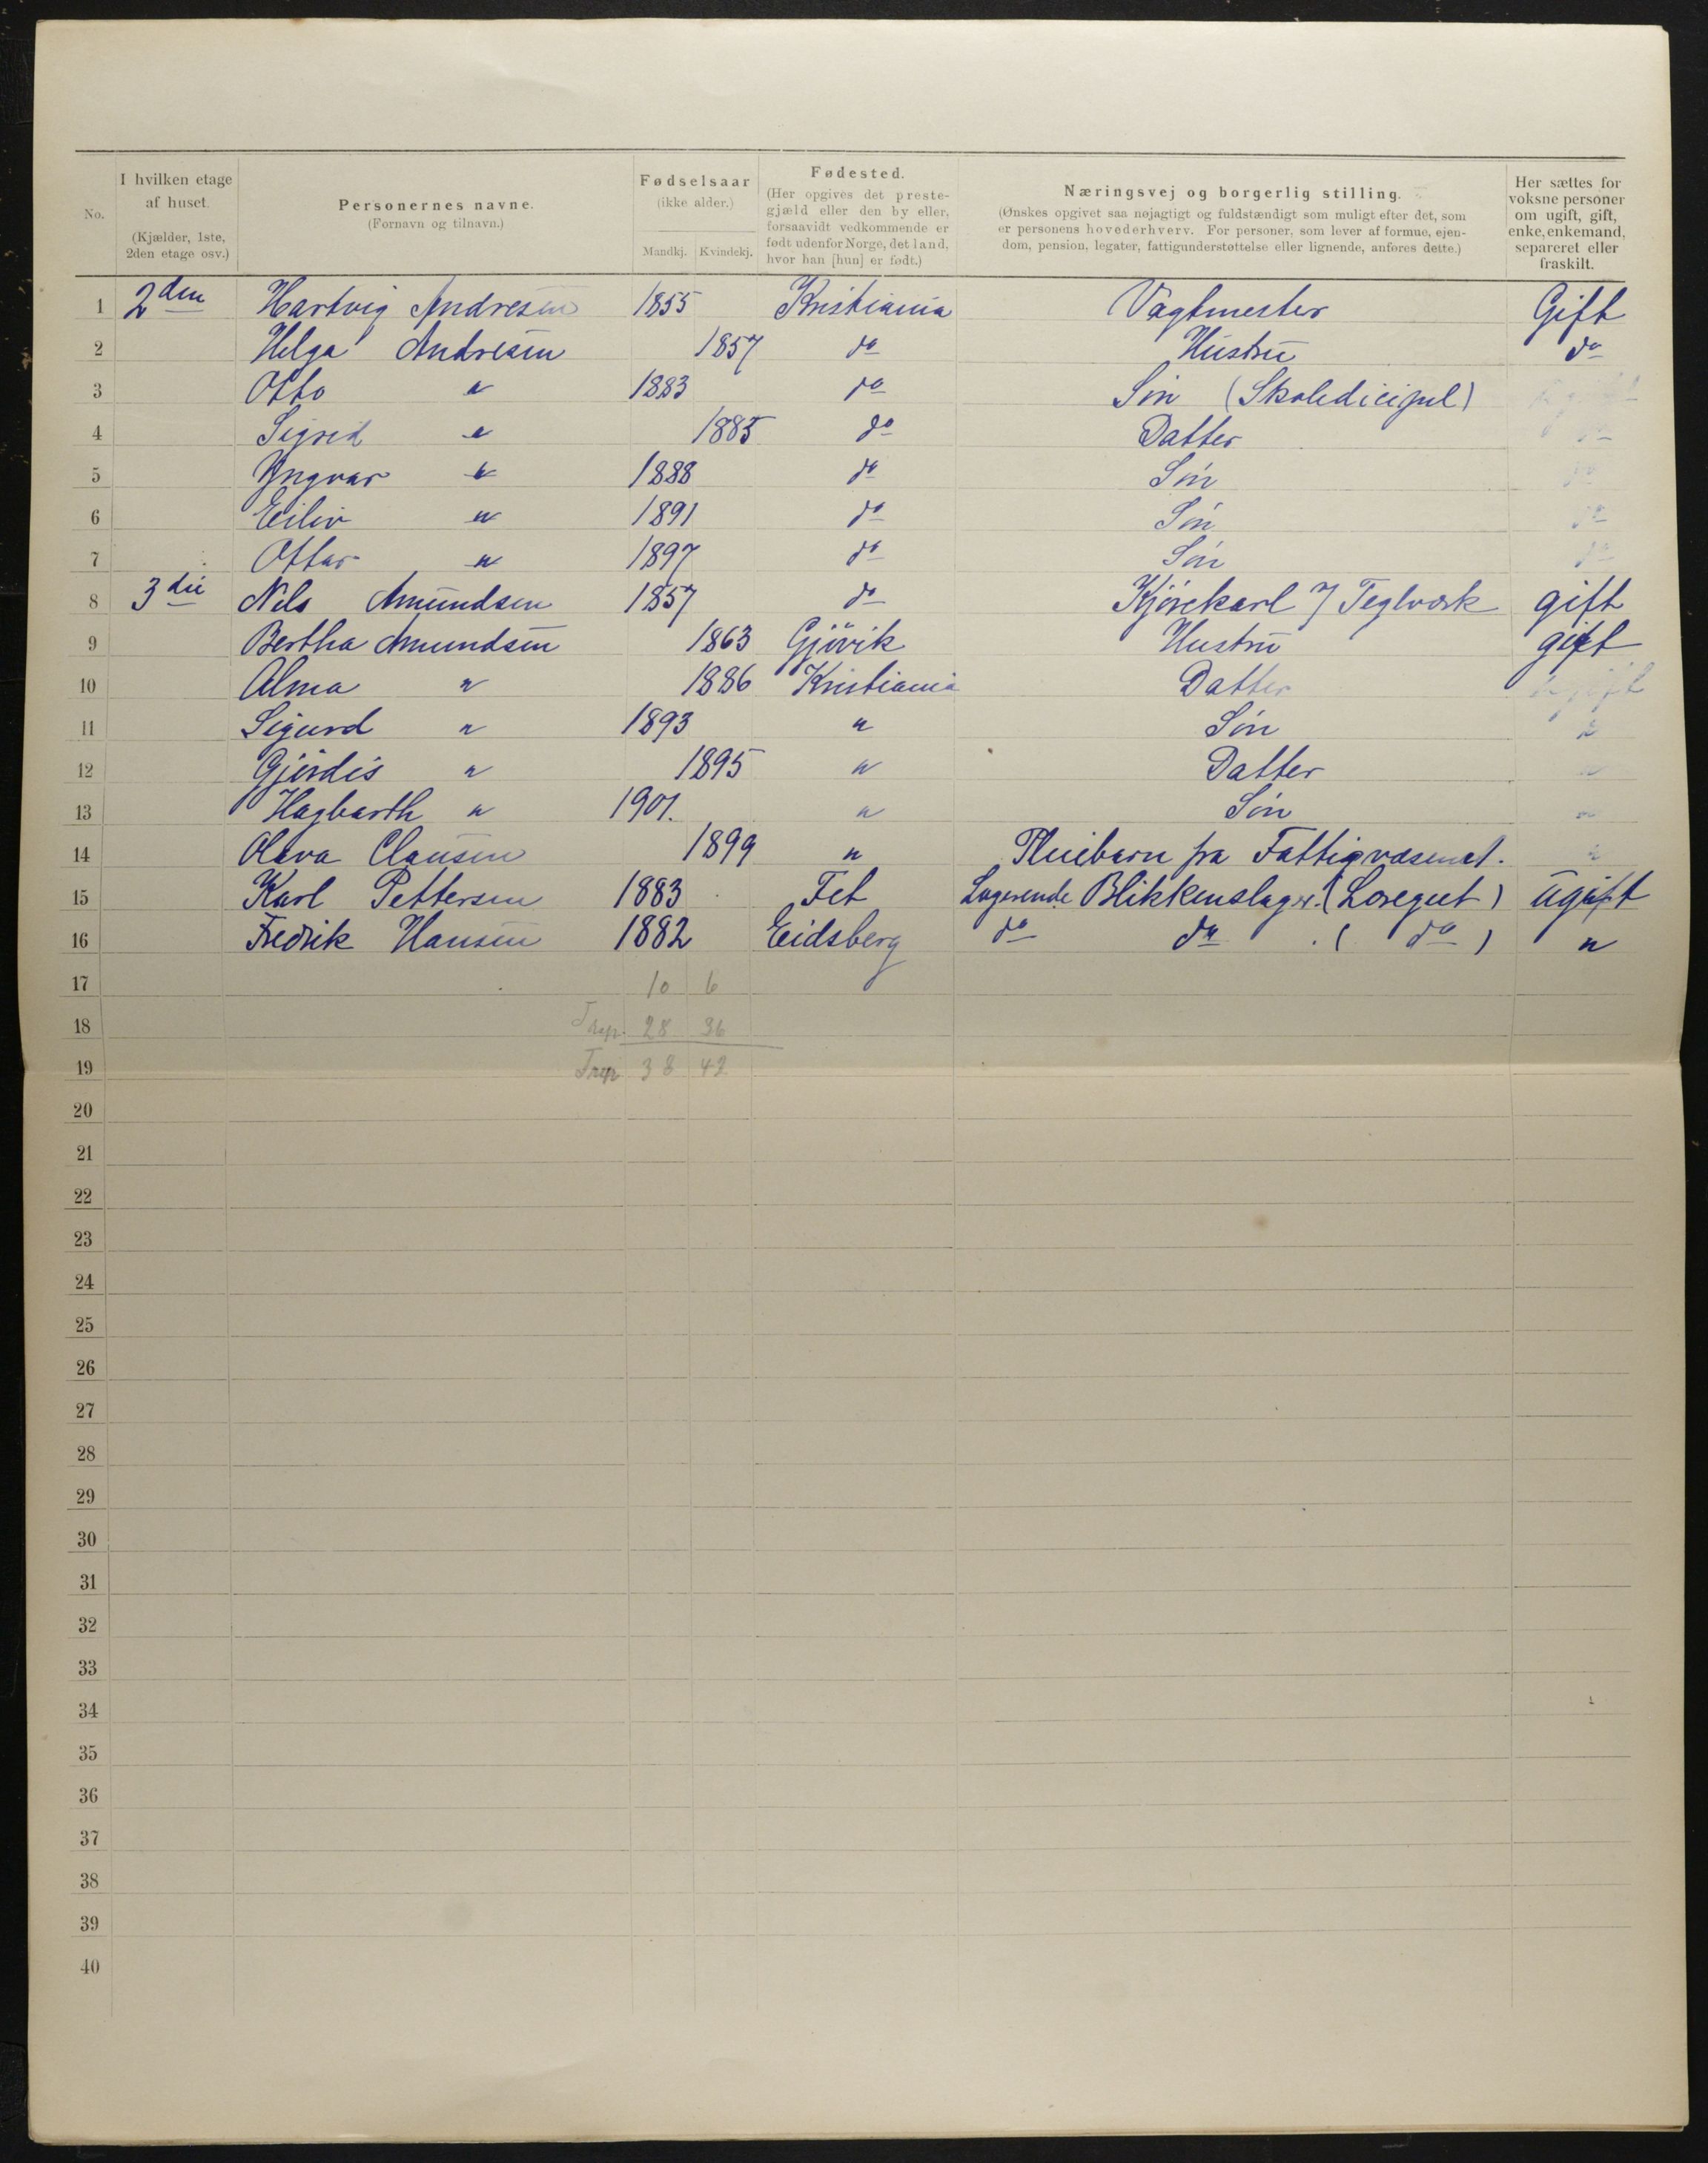 No.
I hvilken etage af huset. (Kjælder, 1ste, 2den etage osv.)
Personernes navne. (Fornavn og tilnavn.)
Fødselsaar (ikke alder.) Mandkj. Kvindekj.
Fødested. (Her opgives det prestegjæld eller den by eller, forsaavidt vedkommende er født udenfor Norge, det land, hvor han [hun] er født.)
Næringsvej og borgerlig stilling. (Ønskes opgivet saa nøjagtigt og fuldstændigt som muligt efter det, som er personens hovederhverv. For personer, som lever af formue, ejendom, pension, legater, fattigunderstøttelse eller lignende, anføres dette.)
Her sættes for voksne personer om ugift, gift, enke, enkemand, separeret eller fraskilt.
1 2den Hartvig Andresen 1855 Kristiania Vagtmester Gift
2 Helga Andresen 1857 do Hustru do
3 Otto " 1883 do Søn (Skoledicipel)
4 Sigrid " 1885 do Datter do
5 Yngvar " 1888 do Søn do
6 Eiliv " 1891 do Søn do
7 Ottar " 1897 do Søn do
8 3die Nils Amundsen 1857 do Kjørekarl v/ Teglværk gift
9 Bertha Amundsen 1863 Gjøvik Hustru gift
10 Alma " 1886 Kristiania Datter ugift
11 Sigurd " 1893 " Søn "
12 Gjørdis " 1895 " Datter "
13 Hagbarth " 1901. " Søn "
14 Olava Clausen 1899 " Pleiebarn fra Fattigvæsenet. "
15 Karl Pettersen 1883 Fet Logerende Blikkenslager. (Læregut) ugift
16 Fredrik Hansen 1882 Eidsberg do do (do) "
17 10 6
18 Trsp. 28 36
19 Trsp 38 42
20
21
22
23
24
25
26
27
28
29
30
31
32
33
34
35
36
37
38
39
40